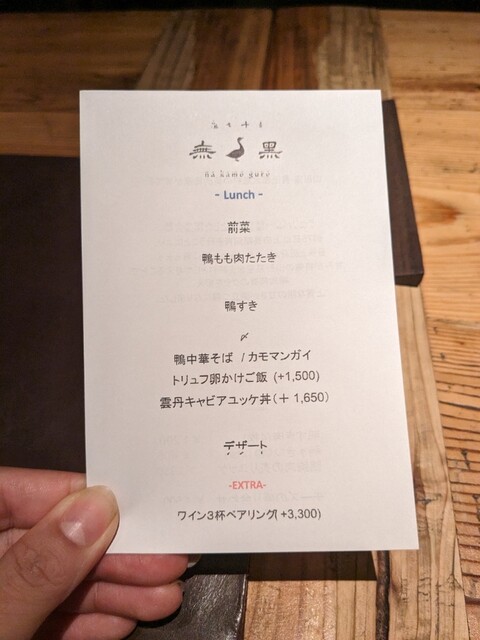 無 黑
na kamo guro
- Lunch -
前菜
鴨もも肉たたき
鴨すき
〆
鴨中華そば / カモマンガイ
トリュフ卵かけご飯 (+1,500)
雲丹キャビアユッケ丼(＋ 1,650)
デザート
-EXTRA-
ワイン3杯ペアリング( +3,300)